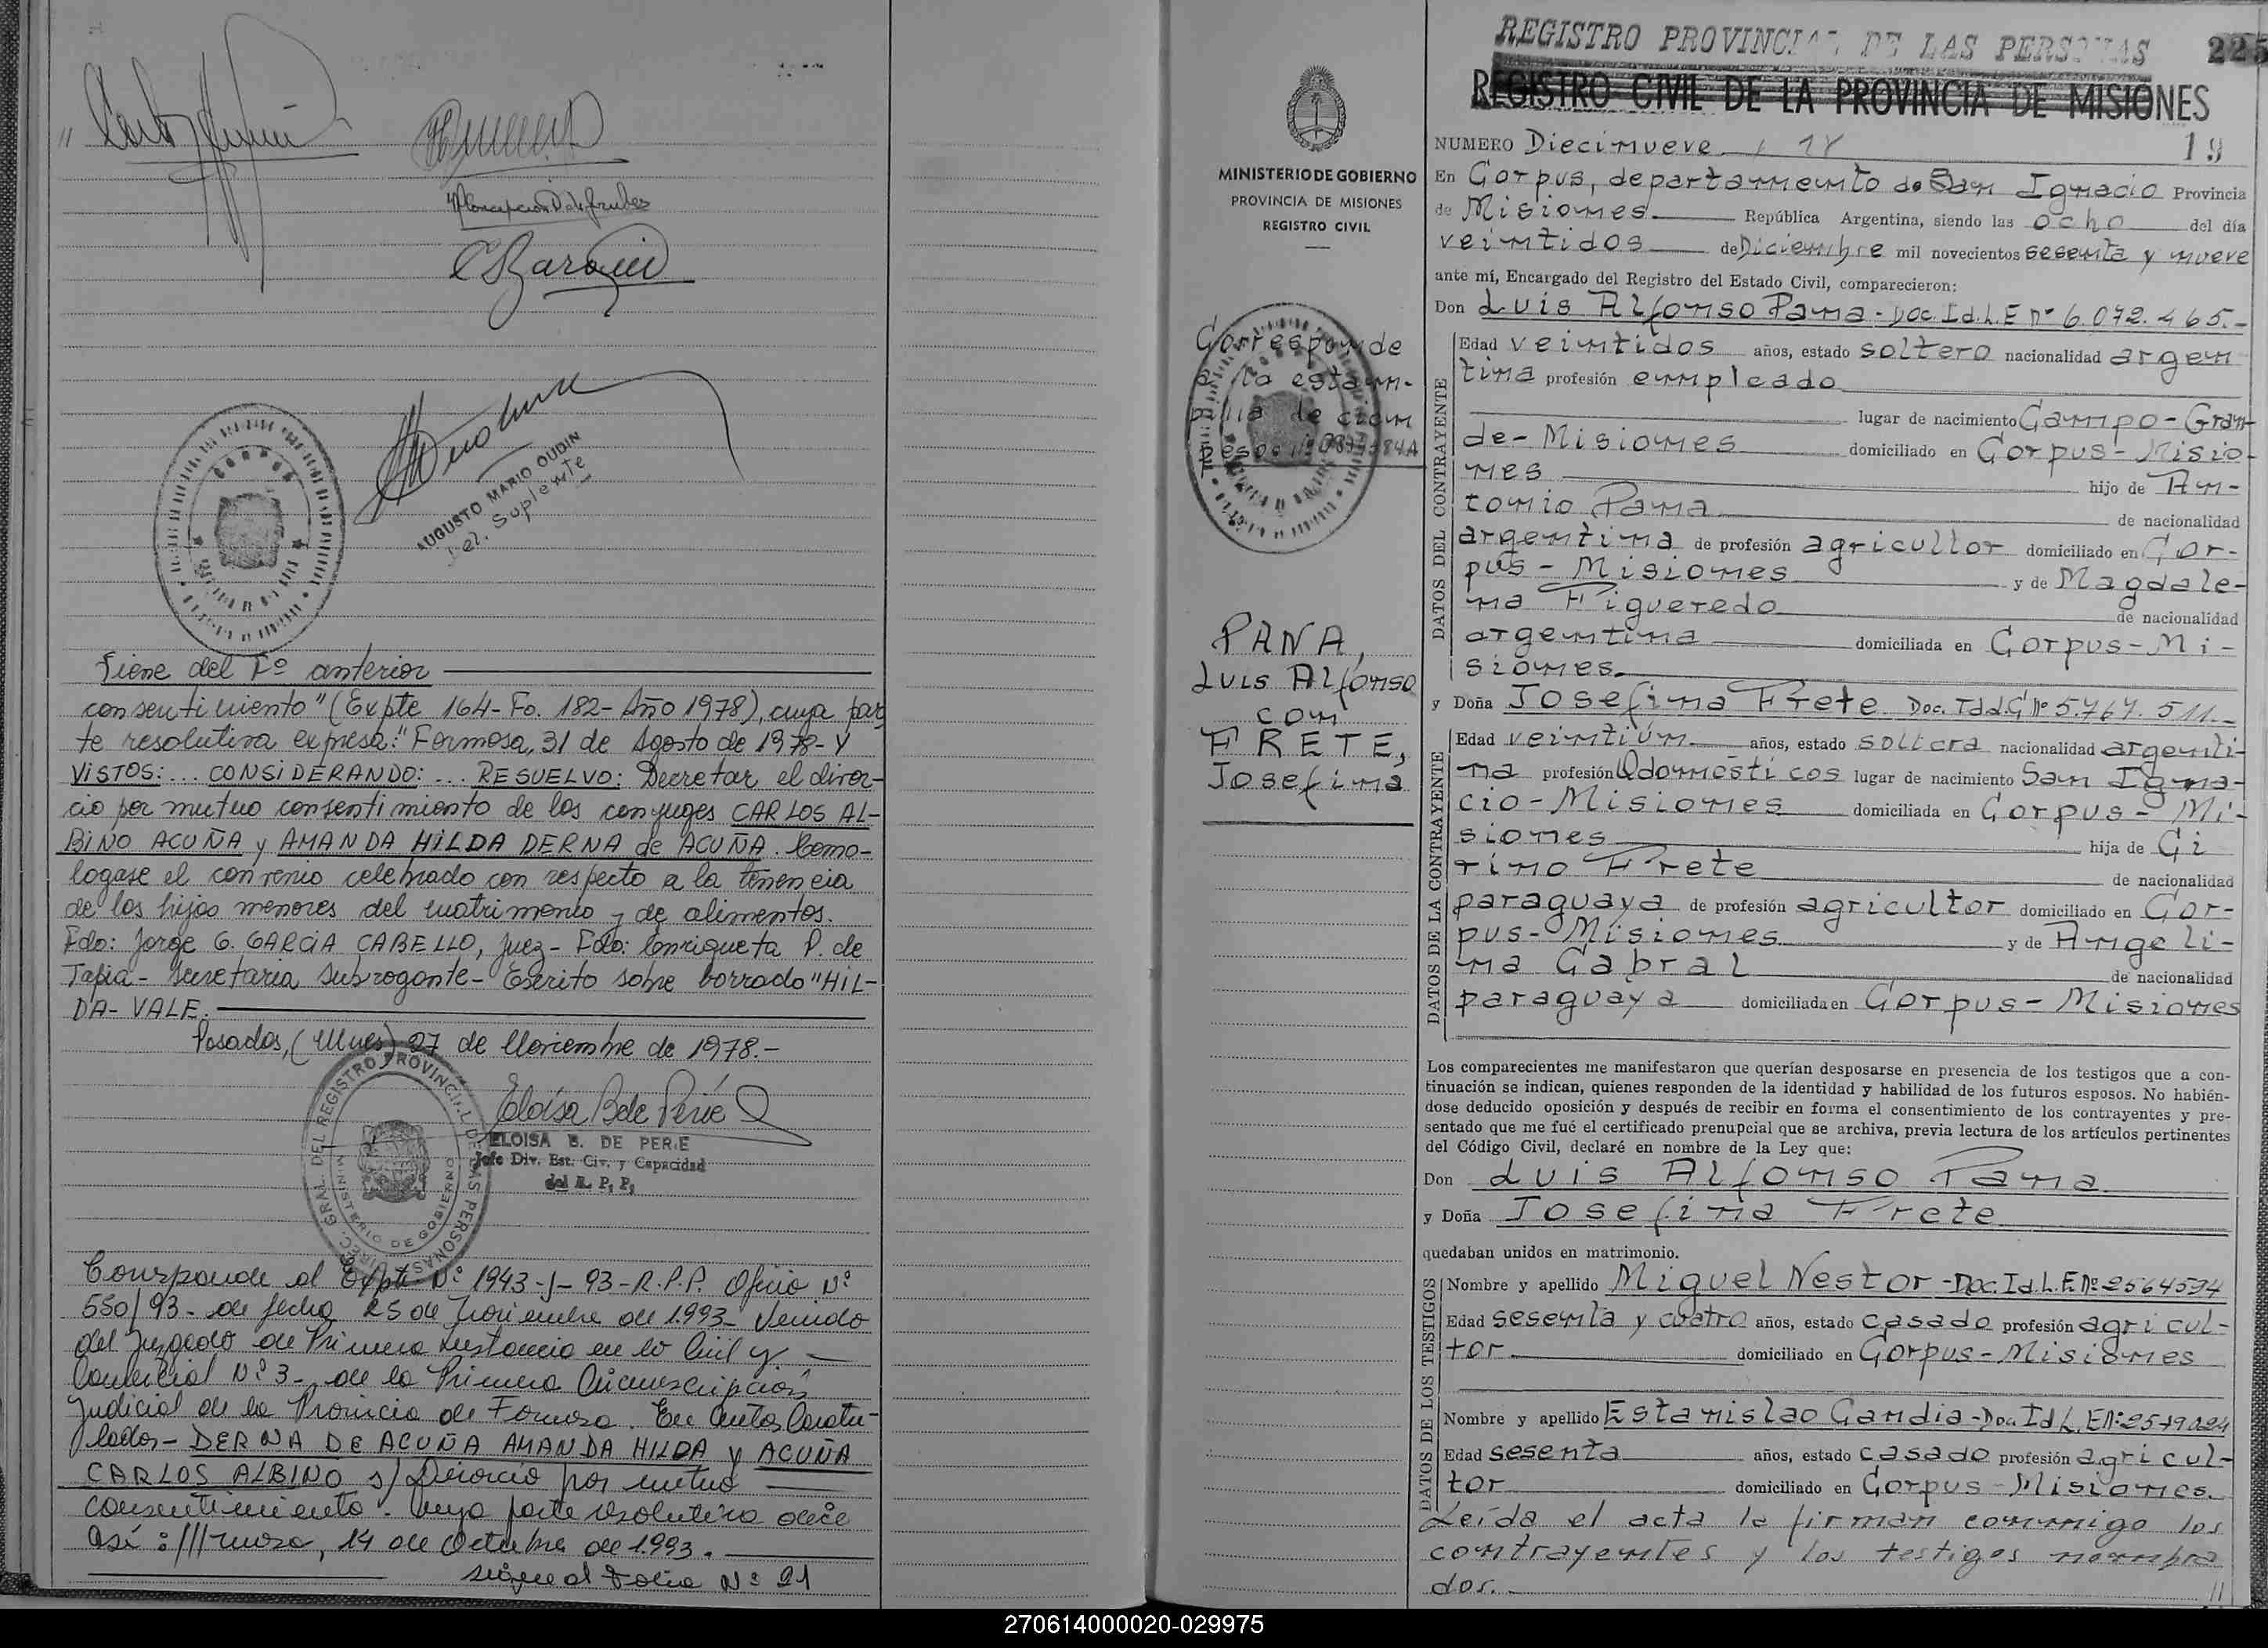 Viene del Fº anterior
consentimiento" (Expte 164-Fo. 182-Año 1978), cuya par
te resolutiva expresa: "Formosa, 31 de Agosto de 1978- Y
VISTOS: ... CONSIDERANDO: ... RESUELVO: Decretar el divor-
cio por mutuo consentimiento de los conyuges CARLOS AL-
BINO ACUÑA y AMANDA HILDA DERNA de ACUÑA. Homo-
logase el convenio celebrado con respecto a la tenencia
de los hijos menores del matrimonio y de alimentos.
Fdo: Jorge G. GARCIA CABELLO, Juez- Fdo: Enriqueta P. de
Tapia- Secretaria Subrogante- Escrito sobre borrado "HIL-
DA- VALE.
Posadas, (Mnes) 27 de Noviembre de 1978.-
AUGUSTO MARIO OUDIN
Suplente
DIREC. GRAL. DEL REGISTRO PROVINCIAL DE LAS PERSONAS
MINISTERIO DE GOBIERNO
Eloisa B de Perie
ELOISA B. DE PERIE
Jefe Div. Est. Civ. y Capacidad
del R. P. P.
Corresponde al Expte. Nº 1943-J-93-R.P.P. Oficio Nº
550/93- de fecha 25 de Noviembre de 1993- Venido
del Juzgado de Primera Instancia en lo Civil y
Comercial Nº 3- de la Primera Circunscripción
Judicial de la Provincia de Formosa. En Autos Caratu-
lados- DERNA DE ACUÑA AMANDA HILDA y ACUÑA
CARLOS ALBINO s/ Divorcio por mutuo
consentimiento. Cuya parte resolutiva dice
Así: ///rmosa, 14 de Octubre de 1993.
sigue al Folio Nº 21
MINISTERIO DE GOBIERNO
PROVINCIA DE MISIONES
REGISTRO CIVIL
Corresponde
a la estam-
pilla de cien
pesos
PANA,
Luis Alfonso
con
FRETE,
Josefina
REGISTRO PROVINCIAL DE LAS PERSONAS 225
REGISTRO CIVIL DE LA PROVINCIA DE MISIONES
NUMERO Diecinueve 19
En Corpus, departamento de San Ignacio Provincia
de Misiones República Argentina, siendo las ocho del día
veintidos de Diciembre mil novecientos sesenta y nueve
ante mí, Encargado del Registro del Estado Civil, comparecieron:
Don Luis Alfonso Pana - Doc. Id. L.E nº 6.072.465.-
DATOS DEL CONTRAYENTE
Edad veintidos años, estado soltero nacionalidad argen
tina profesión empleado
lugar de nacimiento Campo-Gran-
de-Misiones domiciliado en Corpus-Misio-
nes hijo de An-
tonio Pana de nacionalidad
argentina de profesión agricultor domiciliado en Cor-
pus-Misiones y de Magdale-
na Figueredo de nacionalidad
argentina domiciliada en Corpus-Mi-
siones.
y Doña Josefina Frete Doc. Id. C nº 5.767.511.-
DATOS DE LA CONTRAYENTE
Edad veintiún años, estado soltera nacionalidad argenti-
na profesión Q domésticos lugar de nacimiento San Igna-
cio-Misiones domiciliada en Corpus-Mi-
siones hija de Ci
rino Frete de nacionalidad
paraguaya de profesión agricultor domiciliado en Cor-
pus-Misiones y de Angeli-
na Cabral de nacionalidad
paraguaya domiciliada en Corpus-Misiones
Los comparecientes me manifestaron que querían desposarse en presencia de los testigos que a con-
tinuación se indican, quienes responden de la identidad y habilidad de los futuros esposos. No habién-
dose deducido oposición y después de recibir en forma el consentimiento de los contrayentes y pre-
sentado que me fué el certificado prenupcial que se archiva, previa lectura de los artículos pertinentes
del Código Civil, declaré en nombre de la Ley que:
Don Luis Alfonso Pana
y Doña Josefina Frete
quedaban unidos en matrimonio.
DATOS DE LOS TESTIGOS
Nombre y apellido Miguel Nestor - Doc. Id. L.E Nº 2564594
Edad sesenta y cuatro años, estado casado profesión agricul-
tor domiciliado en Corpus-Misiones
Nombre y apellido Estanislao Gandia - Doc. Id L.E Nº
Edad sesenta años, estado casado profesión agricul-
tor domiciliado en Corpus-Misiones.
Leída el acta la firman conmigo los
contrayentes y los testigos nombra
dos. //
270614000020-029975